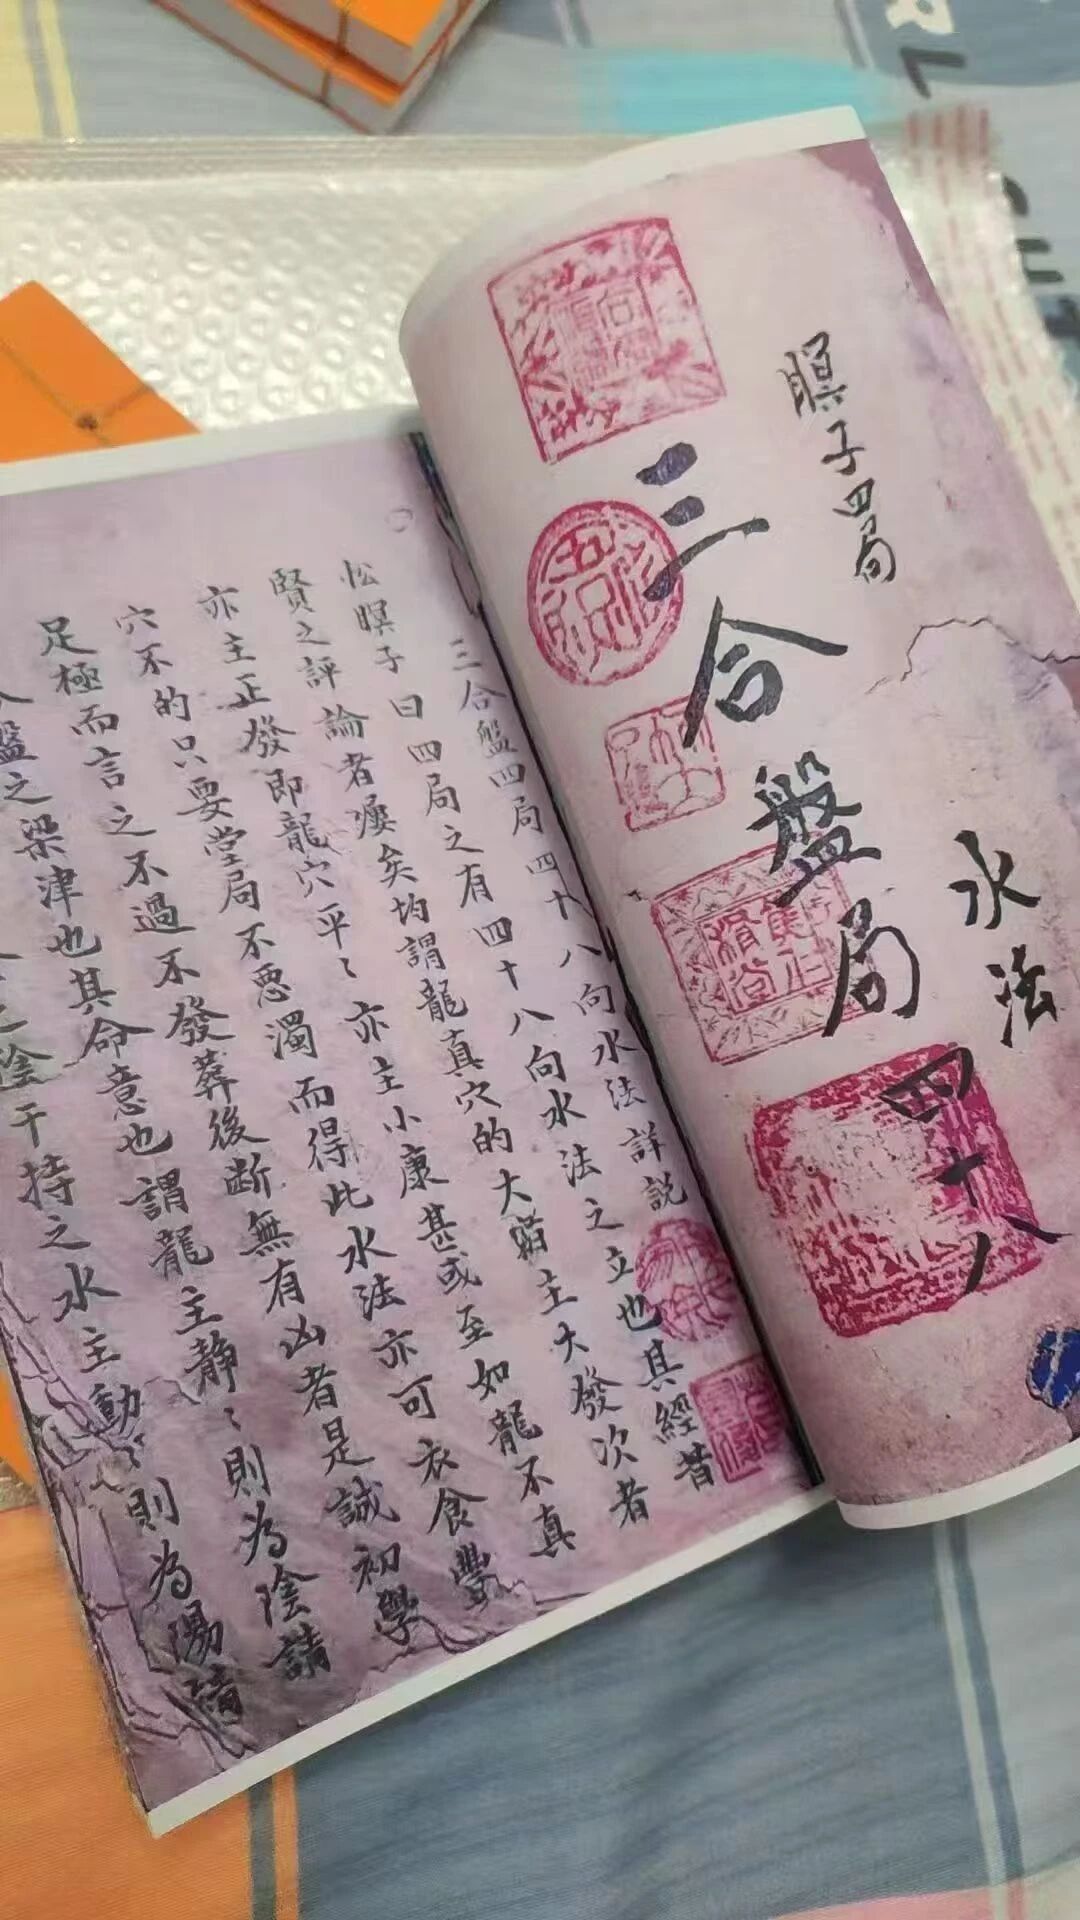 瞑子四局
水法
三合盤局四十八
三合盤四局四十八向水法詳説
松瞑子曰四局之有四十八向水法之立也其經昔
賢之評論者屢矣均謂龍真穴的大葬主大發次者
亦主正發即龍穴平〻亦主小康甚或至如龍不真
穴不的只要堂局不惡濁而得此水法亦可衣食豐
足極而言之不過不發葬後斷無有凶者是誠初學
盤之梁津也其命意也謂龍主靜〻則為陰請
陰干持之水主動〻則為陽請